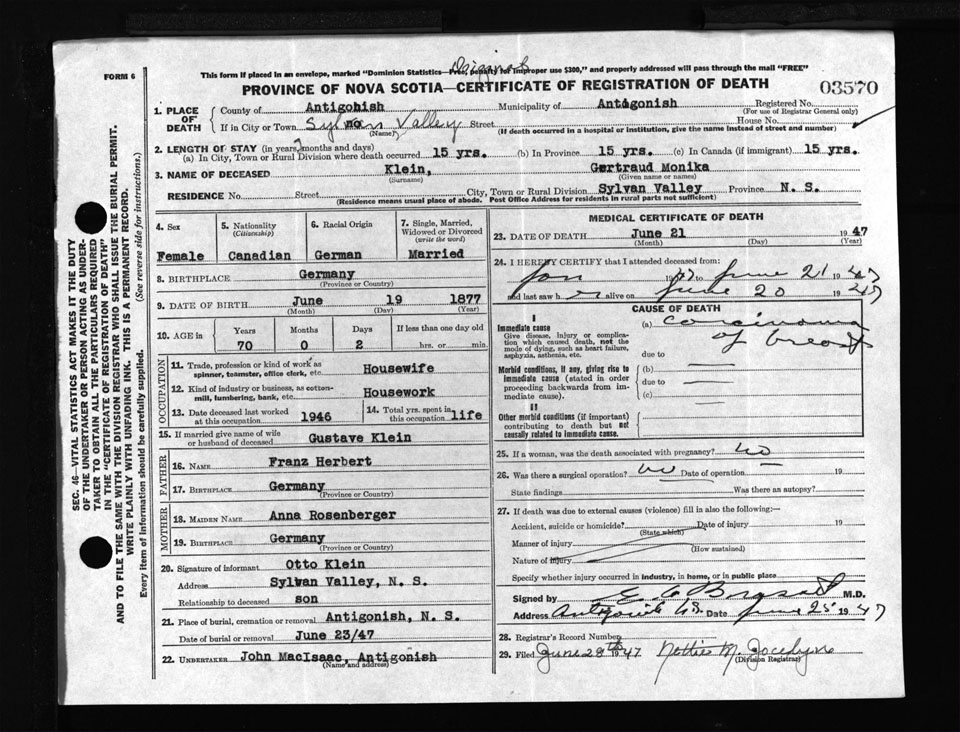 FORM 6
This form if placed in an envelope, marked "Dominion Statistics—Free, penalty for improper use $300," and properly addressed will pass through the mail "FREE"
PROVINCE OF NOVA SCOTIA—CERTIFICATE OF REGISTRATION OF DEATH
03570
1. PLACE OF DEATH { County of Antigonish Municipality of Antigonish Registered No.
(For use of Registrar General only)
If in City or Town Sylvan Valley Street House No.
(Name) (If death occurred in a hospital or institution, give the name instead of street and number)
2. LENGTH OF STAY (in years, months and days)
(a) In City, Town or Rural Division where death occurred 15 yrs. (b) In Province 15 yrs. (c) In Canada (if immigrant) 15 yrs.
3. NAME OF DECEASED Klein, Gertraud Monika
(Surname) (Given name or names)
RESIDENCE No. Street City, Town or Rural Division Sylvan Valley Province N. S.
(Residence means usual place of abode. Post Office Address for residents in rural parts not sufficient)
4. Sex 5. Nationality (Citizenship) 6. Racial Origin 7. Single, Married, Widowed or Divorced (write the word)
Female Canadian German Married
8. BIRTHPLACE Germany
(Province or Country)
9. DATE OF BIRTH June 19 1877
(Month) (Day) (Year)
10. AGE IN Years Months Days If less than one day old
70 0 2 hrs. or min.
OCCUPATION
11. Trade, profession or kind of work as spinner, teamster, office clerk, etc. Housewife
12. Kind of industry or business, as cotton-mill, lumbering, bank, etc. Housework
13. Date deceased last worked at this occupation 1946 14. Total yrs. spent in this occupation life
15. If married give name of wife or husband of deceased Gustave Klein
FATHER
16. NAME Franz Herbert
17. BIRTHPLACE Germany
(Province or Country)
MOTHER
18. MAIDEN NAME Anna Rosenberger
19. BIRTHPLACE Germany
(Province or Country)
20. Signature of informant Otto Klein
Address Sylvan Valley, N. S.
Relationship to deceased son
21. Place of burial, cremation or removal Antigonish, N. S.
Date of burial or removal June 23/47
22. UNDERTAKER John MacIsaac, Antigonish
(Name and Address)
MEDICAL CERTIFICATE OF DEATH
23. DATE OF DEATH June 21 1947
(Month) (Day) (Year)
24. I HEREBY CERTIFY that I attended deceased from:
Jan 1947 to June 21 1947
and last saw her alive on June 20 1947
CAUSE OF DEATH
I
Immediate cause (a) carcinoma of breast
Give disease, injury or complication which caused death, not the mode of dying, such as heart failure, asphyxia, asthenia, etc.
due to
Morbid conditions, if any, giving rise to immediate cause (stated in order proceeding backwards from immediate cause). (b)
due to
(c)
II
Other morbid conditions (if important) contributing to death but not causally related to immediate cause.
25. If a woman, was the death associated with pregnancy? no
26. Was there a surgical operation? no Date of operation 19
State findings Was there an autopsy?
27. If death was due to external causes (violence) fill in also the following:—
Accident, suicide or homicide? Date of injury 19
(State which)
Manner of injury
(How sustained)
Nature of injury
Specify whether injury occurred in industry, in home, or in public place
Signed by M.D.
Address Antigonish N.S. Date June 25 1947
28. Registrar's Record Number
29. Filed June 28th 1947 Nottie M. Jocelyne
(Division Registrar)
SEC. 46—VITAL STATISTICS ACT MAKES IT THE DUTY
OF THE UNDERTAKER OR PERSON ACTING AS UNDER-
TAKER TO OBTAIN ALL THE PARTICULARS REQUIRED
IN THE "CERTIFICATE OF REGISTRATION OF DEATH"
AND TO FILE THE SAME WITH THE DIVISION REGISTRAR WHO SHALL ISSUE THE BURIAL PERMIT.
WRITE PLAINLY WITH UNFADING INK. THIS IS A PERMANENT RECORD.
Every item of information should be carefully supplied. (See reverse side for instructions.)